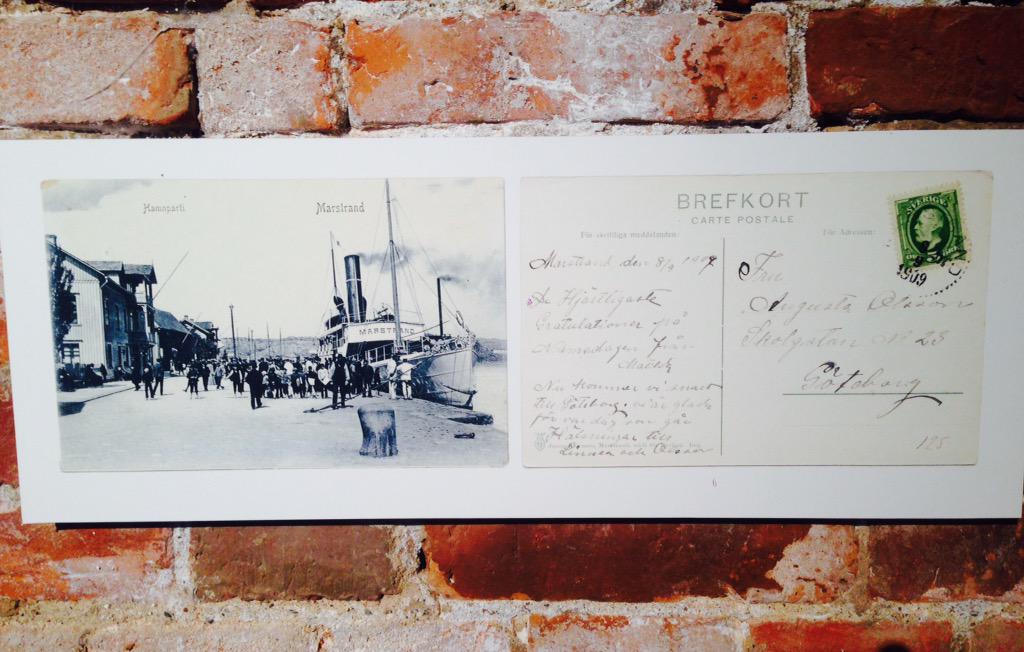 Hamnparti
Marstrand
MARSTRAND
BREFKORT
CARTE POSTALE
För skriftliga meddelanden:
För Adressen:
SVERIGE
1909
Marstrand den 8/9 1909
Hjärtligaste
Gratulationer på
Namnsdagen från
Nu kommer vi snart
till Göteborg. vi är glada
för var dag som går
Hälsningar till
Linnea och Oscar
Fru
Augusta Olsson
Skolgatan No 23
Göteborg
125
6